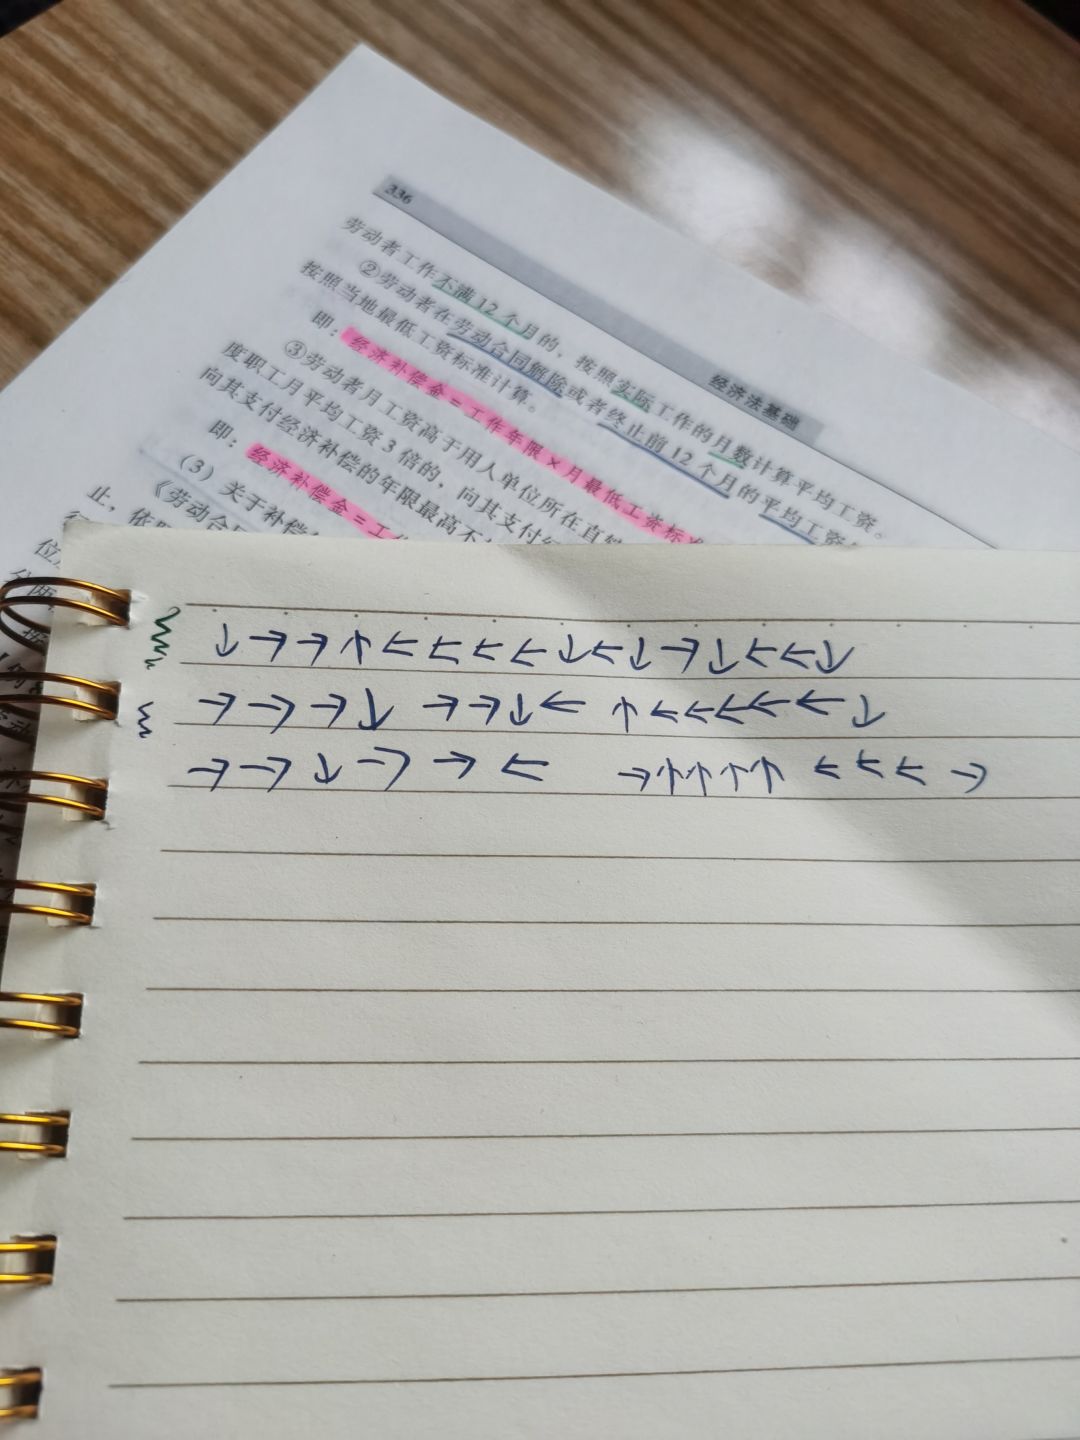 336
经济法基础
劳动者工作不满12个月的，按照实际工作的月数计算平均工资。
②劳动者在劳动合同解除或者终止前12个月的平均工资
按照当地最低工资标准计算。
即：经济补偿金=工作年限×月最低工资标准
③劳动者月工资高于用人单位所在直辖
度职工月平均工资3倍的，向其支付经
向其支付经济补偿的年限最高不
即：经济补偿金=工
（3）关于补偿
《劳动合
止，依
↓→→↑←←←←↓←↓→↓←←↓
→→→↓ →→↓← ↑←←←←←↓
→→↓→→← →↑↑↑↑ ←←←→